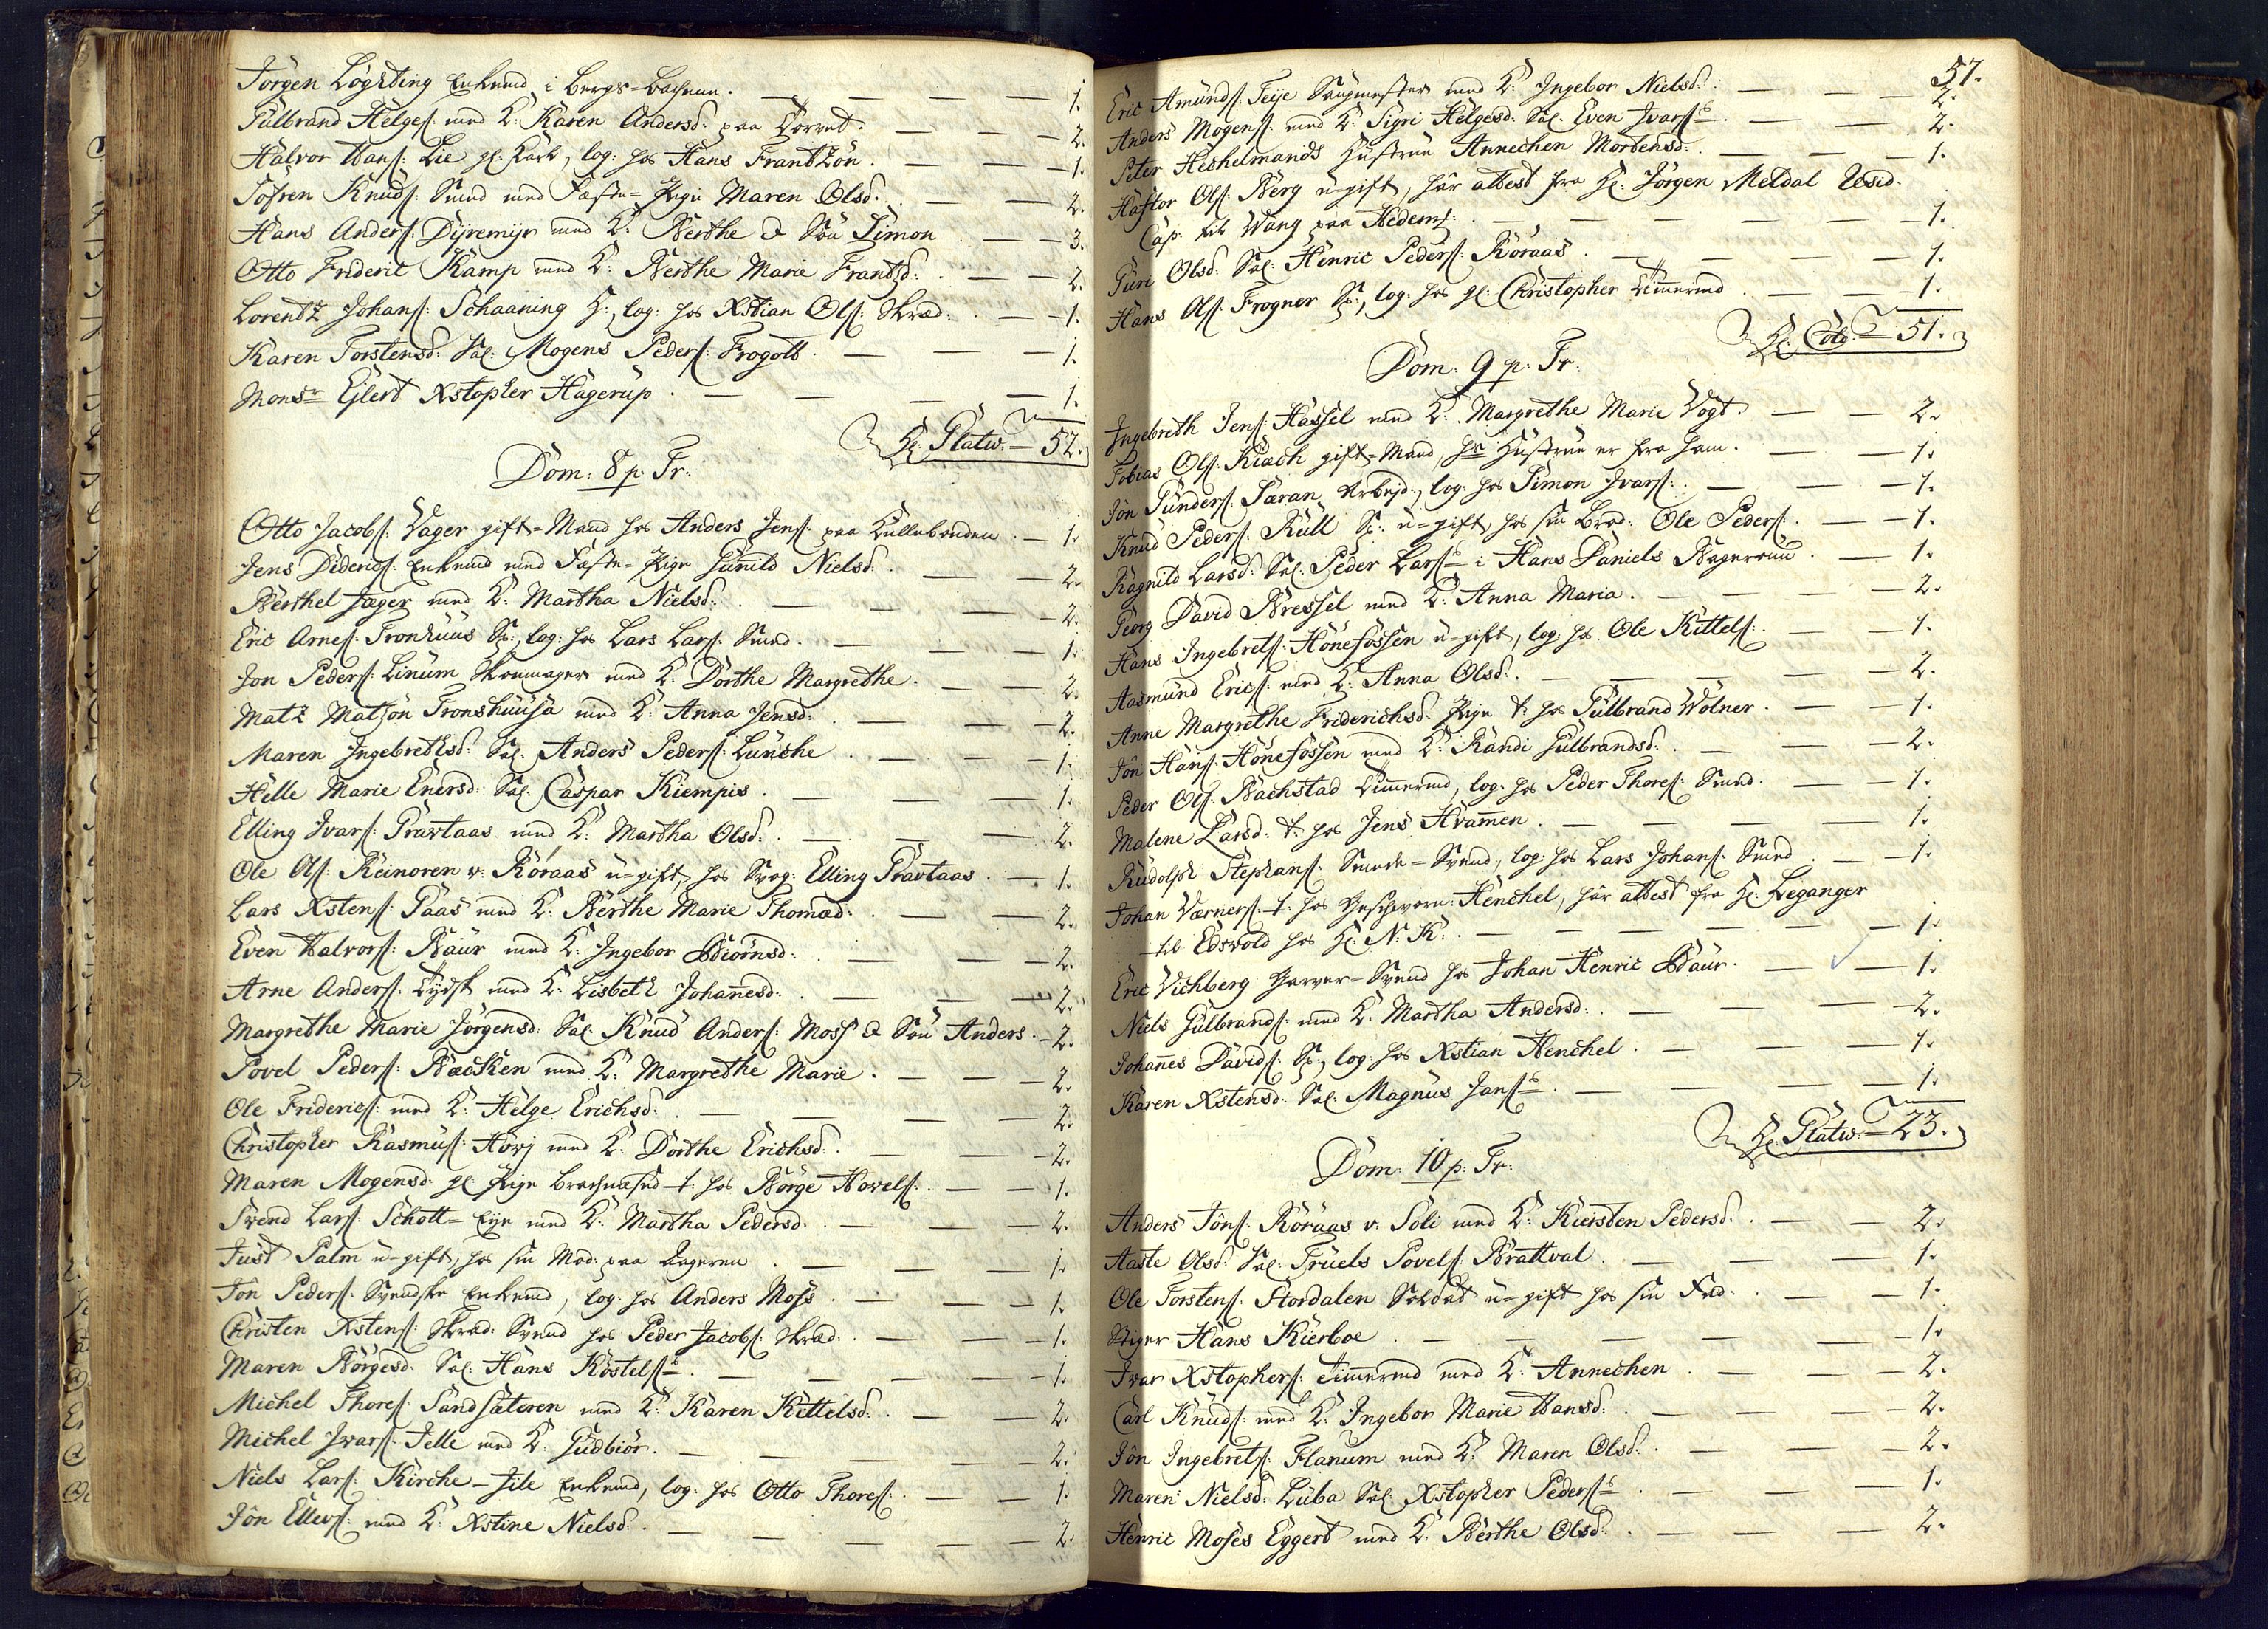 Jörgen Lögsting Enkemd i Bergs-Bachene. — 1.
Gulbrand Helges: med K: Karen Andersd: paa Torvet. — 2.
Halvor Hans: Lie gl: Karl, log: hos Hans Frantzön. — 1.
Söfren Knuds: Smed med Fæste-Pige Maren Olsd: — 2.
Hans Anders: Dyremyr med K: Berthe & Sön Simon — 3.
Otto Friderit Kamp med K: Berthe Marie Frantzd: — 2.
Lorentz Johans: Schaaning S:, log: hos Xstian Ols: Skræd: — 1.
Karen Torstensd: Sal: Mogens Peders: Frogots. — 1.
Monsr Ejlert Xstopher Hagerup. — 1.
H: Platw: — 52.
Dom: 8 p. Tr:
Otto Jacobs: Vager gift-Mand hos Anders Jens: paa Kullebonden. — 1.
Jens Diderics: Enkemd med Fæste-Pige Gunild Nielsd: — 2.
Berthel Jæger med K: Martha Nielsd: — 2.
Eric Arnes: Tronhuus S:, log: hos Lars Lars: Smed. — 1.
Jon Peders: Linum Skoemager med K: Dorthe Margrethe. — 2.
Matz Matzön Tronshuusa med K: Anna Jensd: — 2.
Maren Ingebrethsd: Sal: Anders Peders: Lunche — 1.
Helle Marie Enersd: Sal: Caspar Kiempis. — 1.
Elling Ivars: Prawtaas med K: Martha Olsd: — 2.
Ole Ols: Reinoren v. Röraas u-gift, hos Svog: Elling Prawtaas. — 1.
Lars Xstens: Paas med K: Berthe Marie Thomæd: — 2.
Even Halvors: Baur med K: Ingebor Biörnsd: — 2.
Arne Anders: Tydsk med K: Lisbeth Johannesd: — 2.
Margrethe Marie Jörgensd: Sal: Knud Anders: Moss & Sön Anders. — 2.
Povel Peders: Bæcken med K: Margrethe Marie. — 2.
Ole Friderics: med K: Helge Erichsd: — 2.
Christopher Rasmus: Hövj med K: Dorthe Erichsd: — 2.
Maren Mogensd: gl: Pige t: hos Börge Hovels: — 1.
Svend Lars: Schott-Eje med K: Martha Pedersd: — 2.
Just Palm u-gift, hos sin Mod: paa Lageren — 1.
Jön Peders: Svendske Enkemd, log: hos Anders Moss. — 1.
Christen Xstens: Skræd: Svend hos Peder Jacobs: Skræd: — 1.
Maren Börgesd: Sal: Hans Köstels: — 1.
Michel Thores: Sandsæteren med K: Karen Kittelsd: — 2.
Michel Ivars: Jelle med K: Gudbiör. — 2.
Niels Lars: Kirche-Jile Enkemd, log: hos Otto Thores: — 1.
Jön Ellevs: med K: Xstine Nielsd: — 2.
57.
Eric Amunds: Teije Saugmester med K: Ingebor Nielsd: — 2.
Anders Mogens: med K: Sigri Helgesd: Sal: Even Ivars: — 2.
Peter Hechelmands Hustrue Annechen Mortensd: — 1.
Haftor Ols: Berg u-gift, har attest fra H: Jörgen Meldal Resid:
Cap: til Wang paa Hedem: — 1.
Guri Olsd: Sal: Henric Peders: Röraas. — 1.
Hans Ols: Frogner S:, log: hos gl: Christopher Timmermd — 1.
H: Colb: — 51.
Dom: 9 p: Tr:
Ingebreth Jens: Hassel med K: Margrethe Marie Vogt. — 2.
Tobias Ols: Kiach gift-Mand, hs Hustrue er fra ham. — 1.
Jön Gunders: Saran Arbejd:, log: hos Simon Ivars: — 1.
Knud Peders: Rull S: u-gift, hos sin Brod: Ole Peders: — 1.
Ragnild Larsd: Sal: Peder Lars: i Hans Daniels Bageroun. — 1.
Georg David Bressel med K: Anna Maria. — 2.
Hans Ingebrets: Hönefossen u-gift, log: hos Ole Kittels: — 1.
Aasmund Erics: med K: Anna Olsd: — 2.
Anne Margrethe Friderichsd: Pige t: hos Gulbrand Wölner. — 1.
Jön Hans: Hönefossen med K: Randi Gulbrandsd: — 2.
Peder Ols: Bachstad Timmermd, log: hos Peder Thores: Smed. — 1.
Malene Larsd: t: hos Jens Hvammen. — 1.
Rudolph Stephans: Smede-Svend, log: hos Lars Johans: Smed — 1.
Johan Værners: t: hos Geschworn: Henchel, har attest fra H: Leganger
til Edsvold hos H: N: K: — 1.
Eric Vichberg Garver-Svend hos Johan Henric Baur. — 1.
Niels Gulbrands: med K: Martha Andersd: — 2.
Johannes Davids: S:, log: hos Xstian Henchel. — 1.
Karen Xstensd: Sal: Magnus Jans: — 1.
H: Platw: — 23.
Dom: 10 p: Tr:
Anders Jöns: Röraas v. Soli med K: Kiersten Pedersd: — 2.
Aaste Olsd: Sal: Truels Povels: Brattval. — 1.
Ole Torstens: Stordalen Soldat u-gift hos sin Fad: — 1.
Stiger Hans Kierboe. — 1.
Ivar Xstophers: Timmermd med K: Annechen. — 2.
Carl Knuds: med K: Ingebor Marie Hansd: — 2.
Jön Ingebrets: Flanum med K: Maren Olsd: — 2.
Maren Nielsd: Luba Sal: Xstopher Peders: — 1.
Henric Moses Eggert med K: Berthe Olsd: — 2.